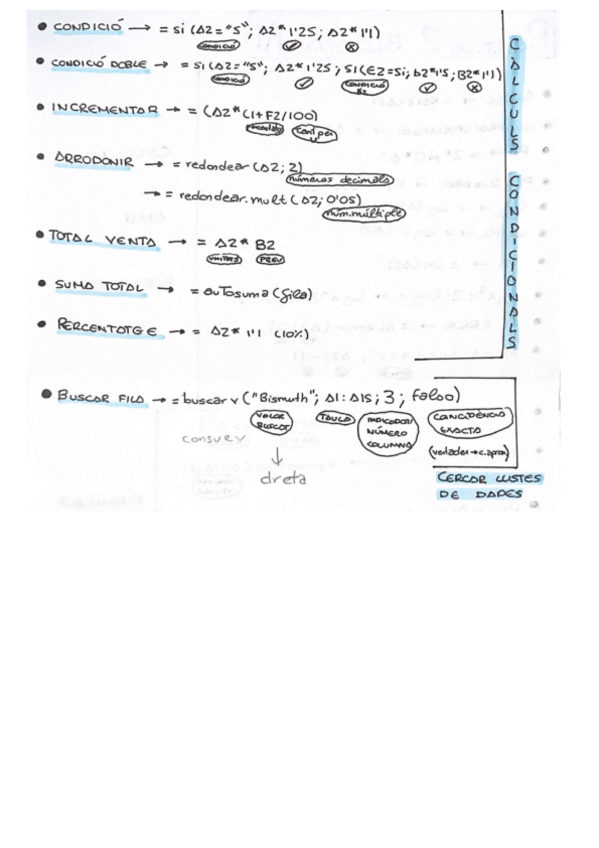 • CONDICIÓ → = si (A2="S"; A2*1'25; A2*1'1)
condició ✓ ✗
• CONDICIÓ DOBLE → = SI(A2="S"; A2*1'25; SI(E2=Si; B2*1'15; B2*1'1)
condició ✓ CONDICIÓ ✓ ✗
• INCREMENTAR → = (A2*(1+F2/100)
• ARRODONIR → = redondear (A2; 2)
números decimals
→ = redondear.mult (A2; 0'05)
núm.múltiple
• TOTAL VENTA → = A2* B2
UNITATS PREU
• SUMA TOTAL → = autosuma (fila)
• PERCENTATGE → = A2* 1'1 (10%)
CÀLCULS CONDICIONALS
• BUSCAR FILA → = buscar v ("Bismuth"; A1:A15; 3; falso)
VALOR BUSCAT
TAULA
INDICADOR/ NÚMERO COLUMNA
COINCIDÈNCIA EXACTA
CONSULV
(verdader→c.aprox)
↓
dreta
CERCAR LLISTES
DE DADES